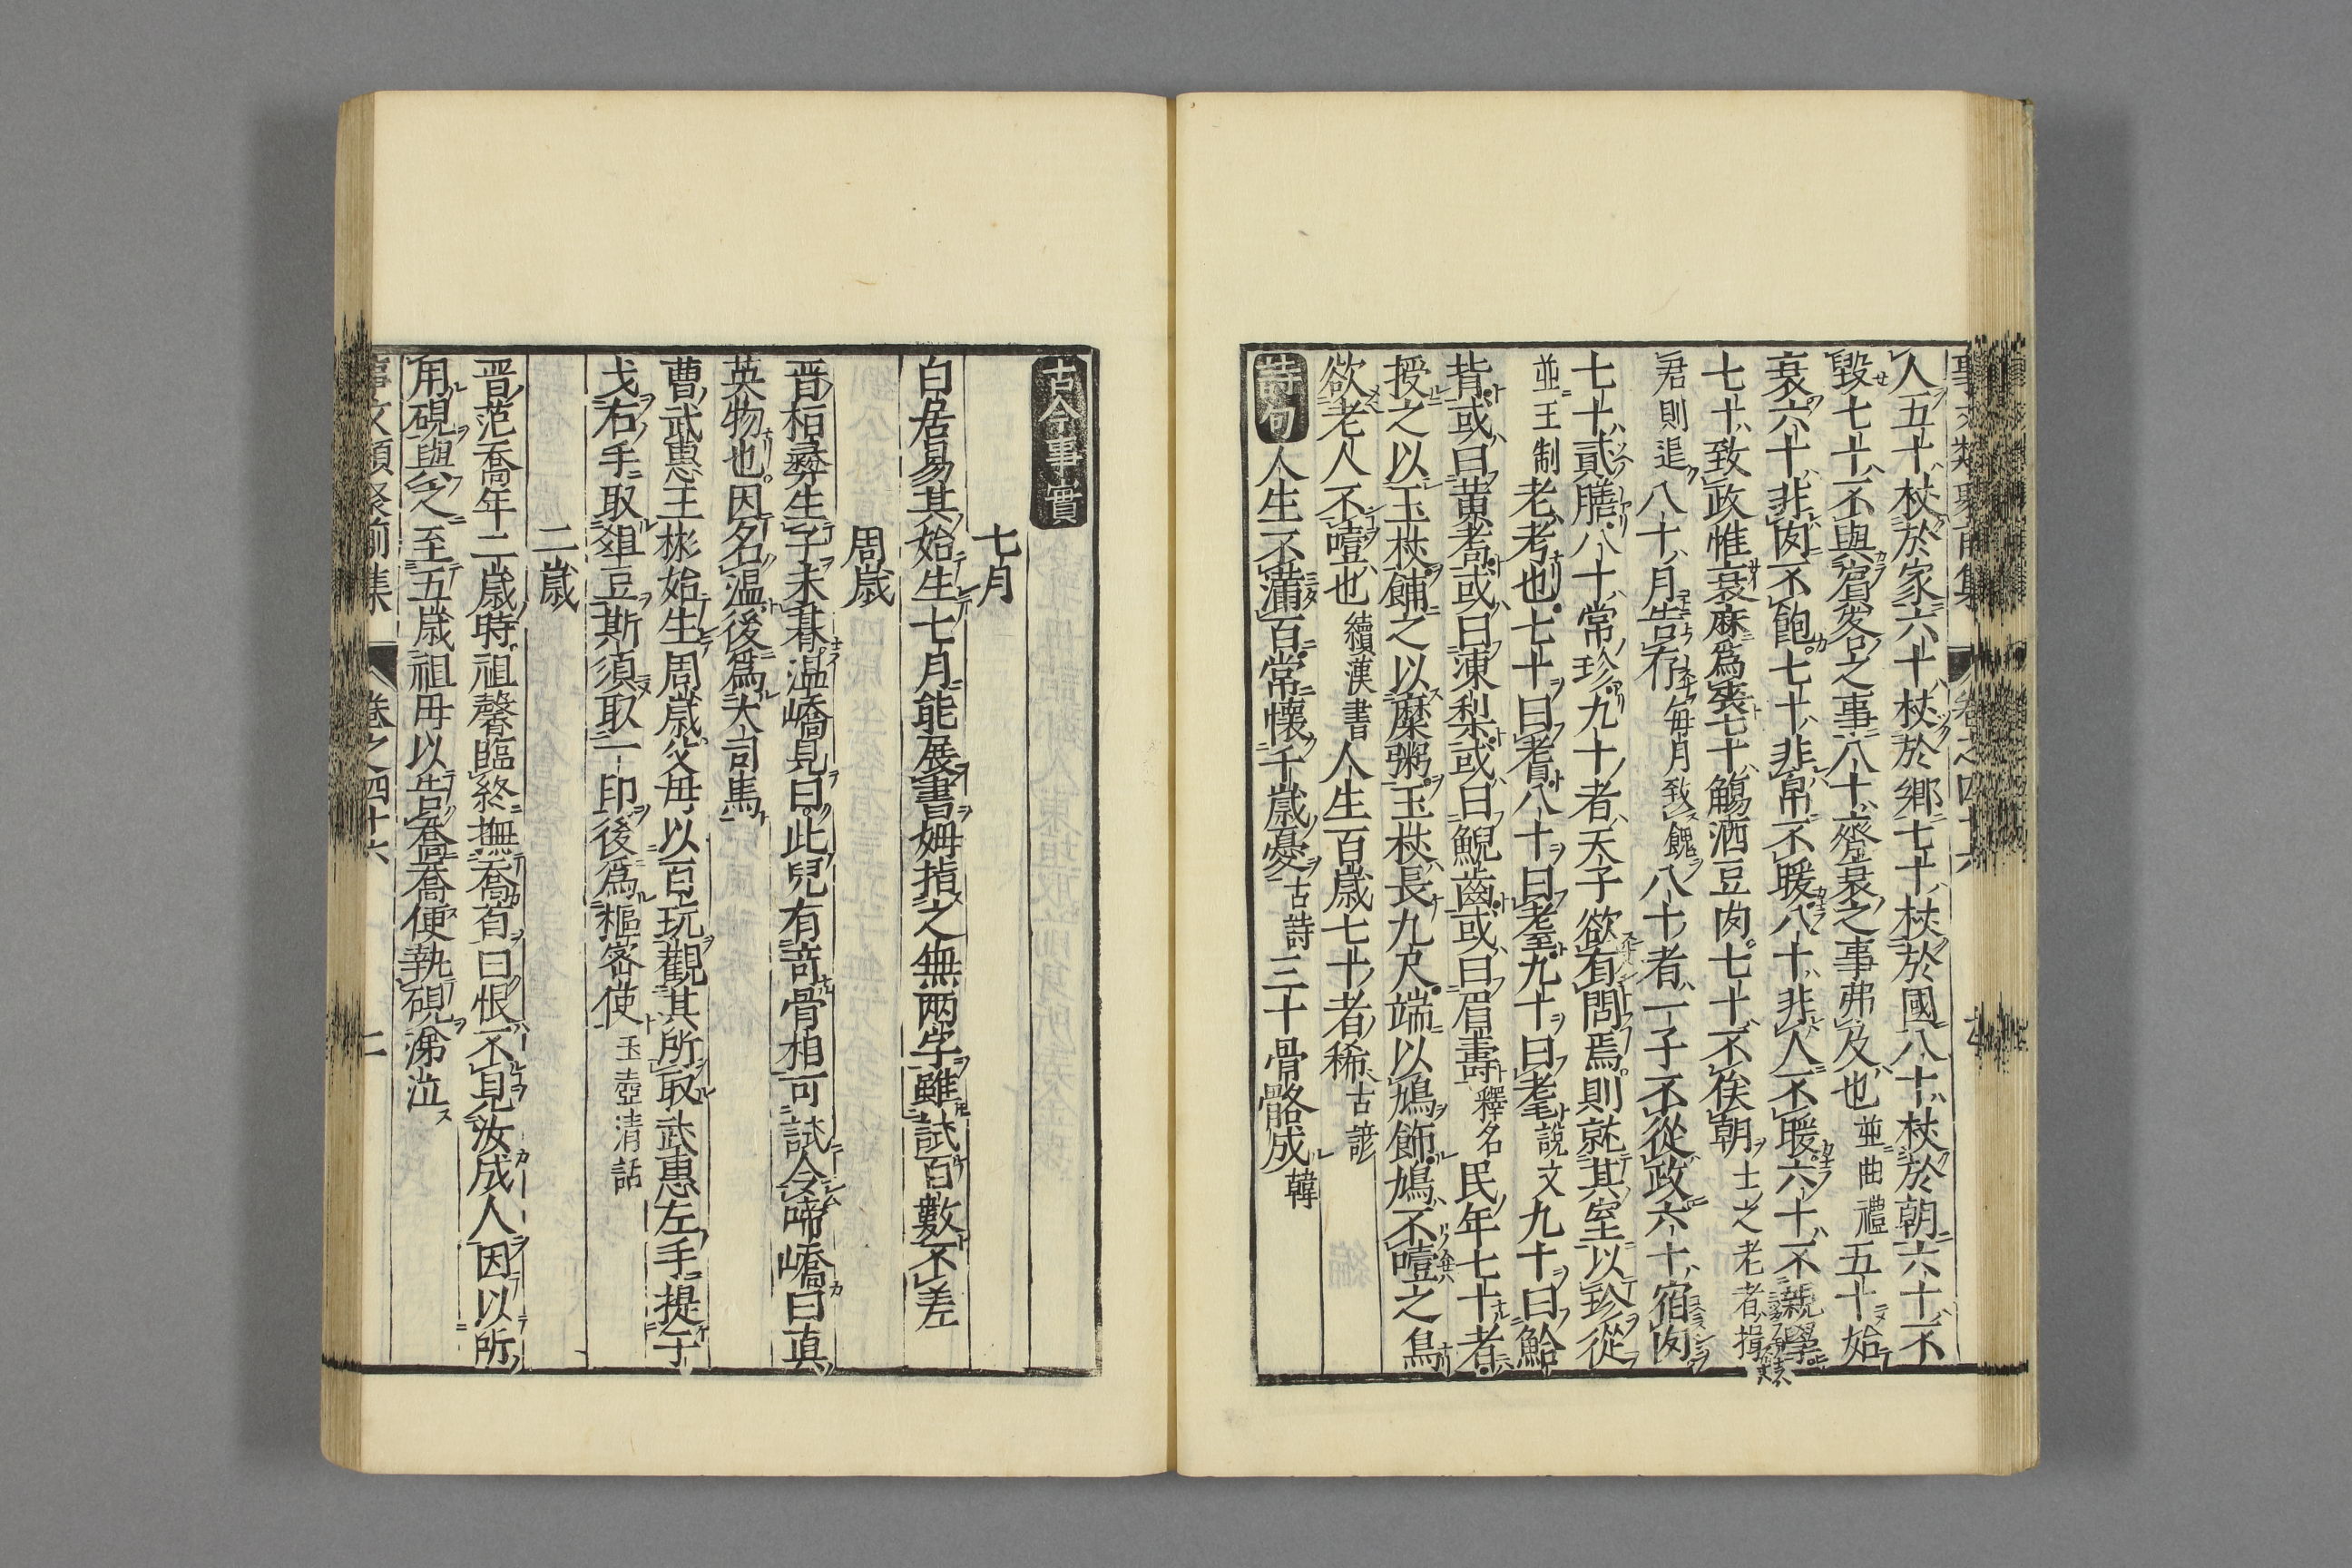 事文類聚前集 卷之四十六
人五十杖於家六十杖於鄉七十杖於國八十杖於朝六十不
毀七十不與賓客之事八十齊衰之事弗及也並曲禮五十始
衰六十非肉不飽七十非帛不暖八十非人不暖六十不親學
七十致政惟衰麻爲喪七十觴酒豆肉七十不俟朝士之老者揖
君則退八十月告存每月致餼八十者一子不從政六十宿肉
七十貳膳八十常珍九十者天子欲有問焉則就其室以珍從
並王制老考也七十曰耆八十曰耋九十曰耄說文九十曰鮐
背或曰黄耇或曰凍梨或曰鯢齒或曰眉壽釋名民年七十者
授之以玉杖餔之以糜粥玉杖長九尺端以鳩飾鳩不噎之鳥
欲老人不噎也續漢書人生百歲七十者稀古諺
詩句 人生不滿百常懷千歲憂古詩三十骨骼成韓
古今事實
七月
白居易其始生七月能展書姆指之無兩字雖試百數不差
周歲
晋桓彝生子未朞温嶠見曰此兒有竒骨相可試令啼嶠曰真
英物也因名温後爲大司馬
曹武惠王彬始生周歲父母以百玩觀其所取武惠左手提干
戈右手取俎豆斯須取一印後爲樞密使玉壺清話
二歲
晋范喬年二歲時祖馨臨終撫喬首曰恨不見汝成人因以所
用硯與之至五歲祖母以告喬喬便執硯涕泣
事文類聚前集 卷之四十六 二